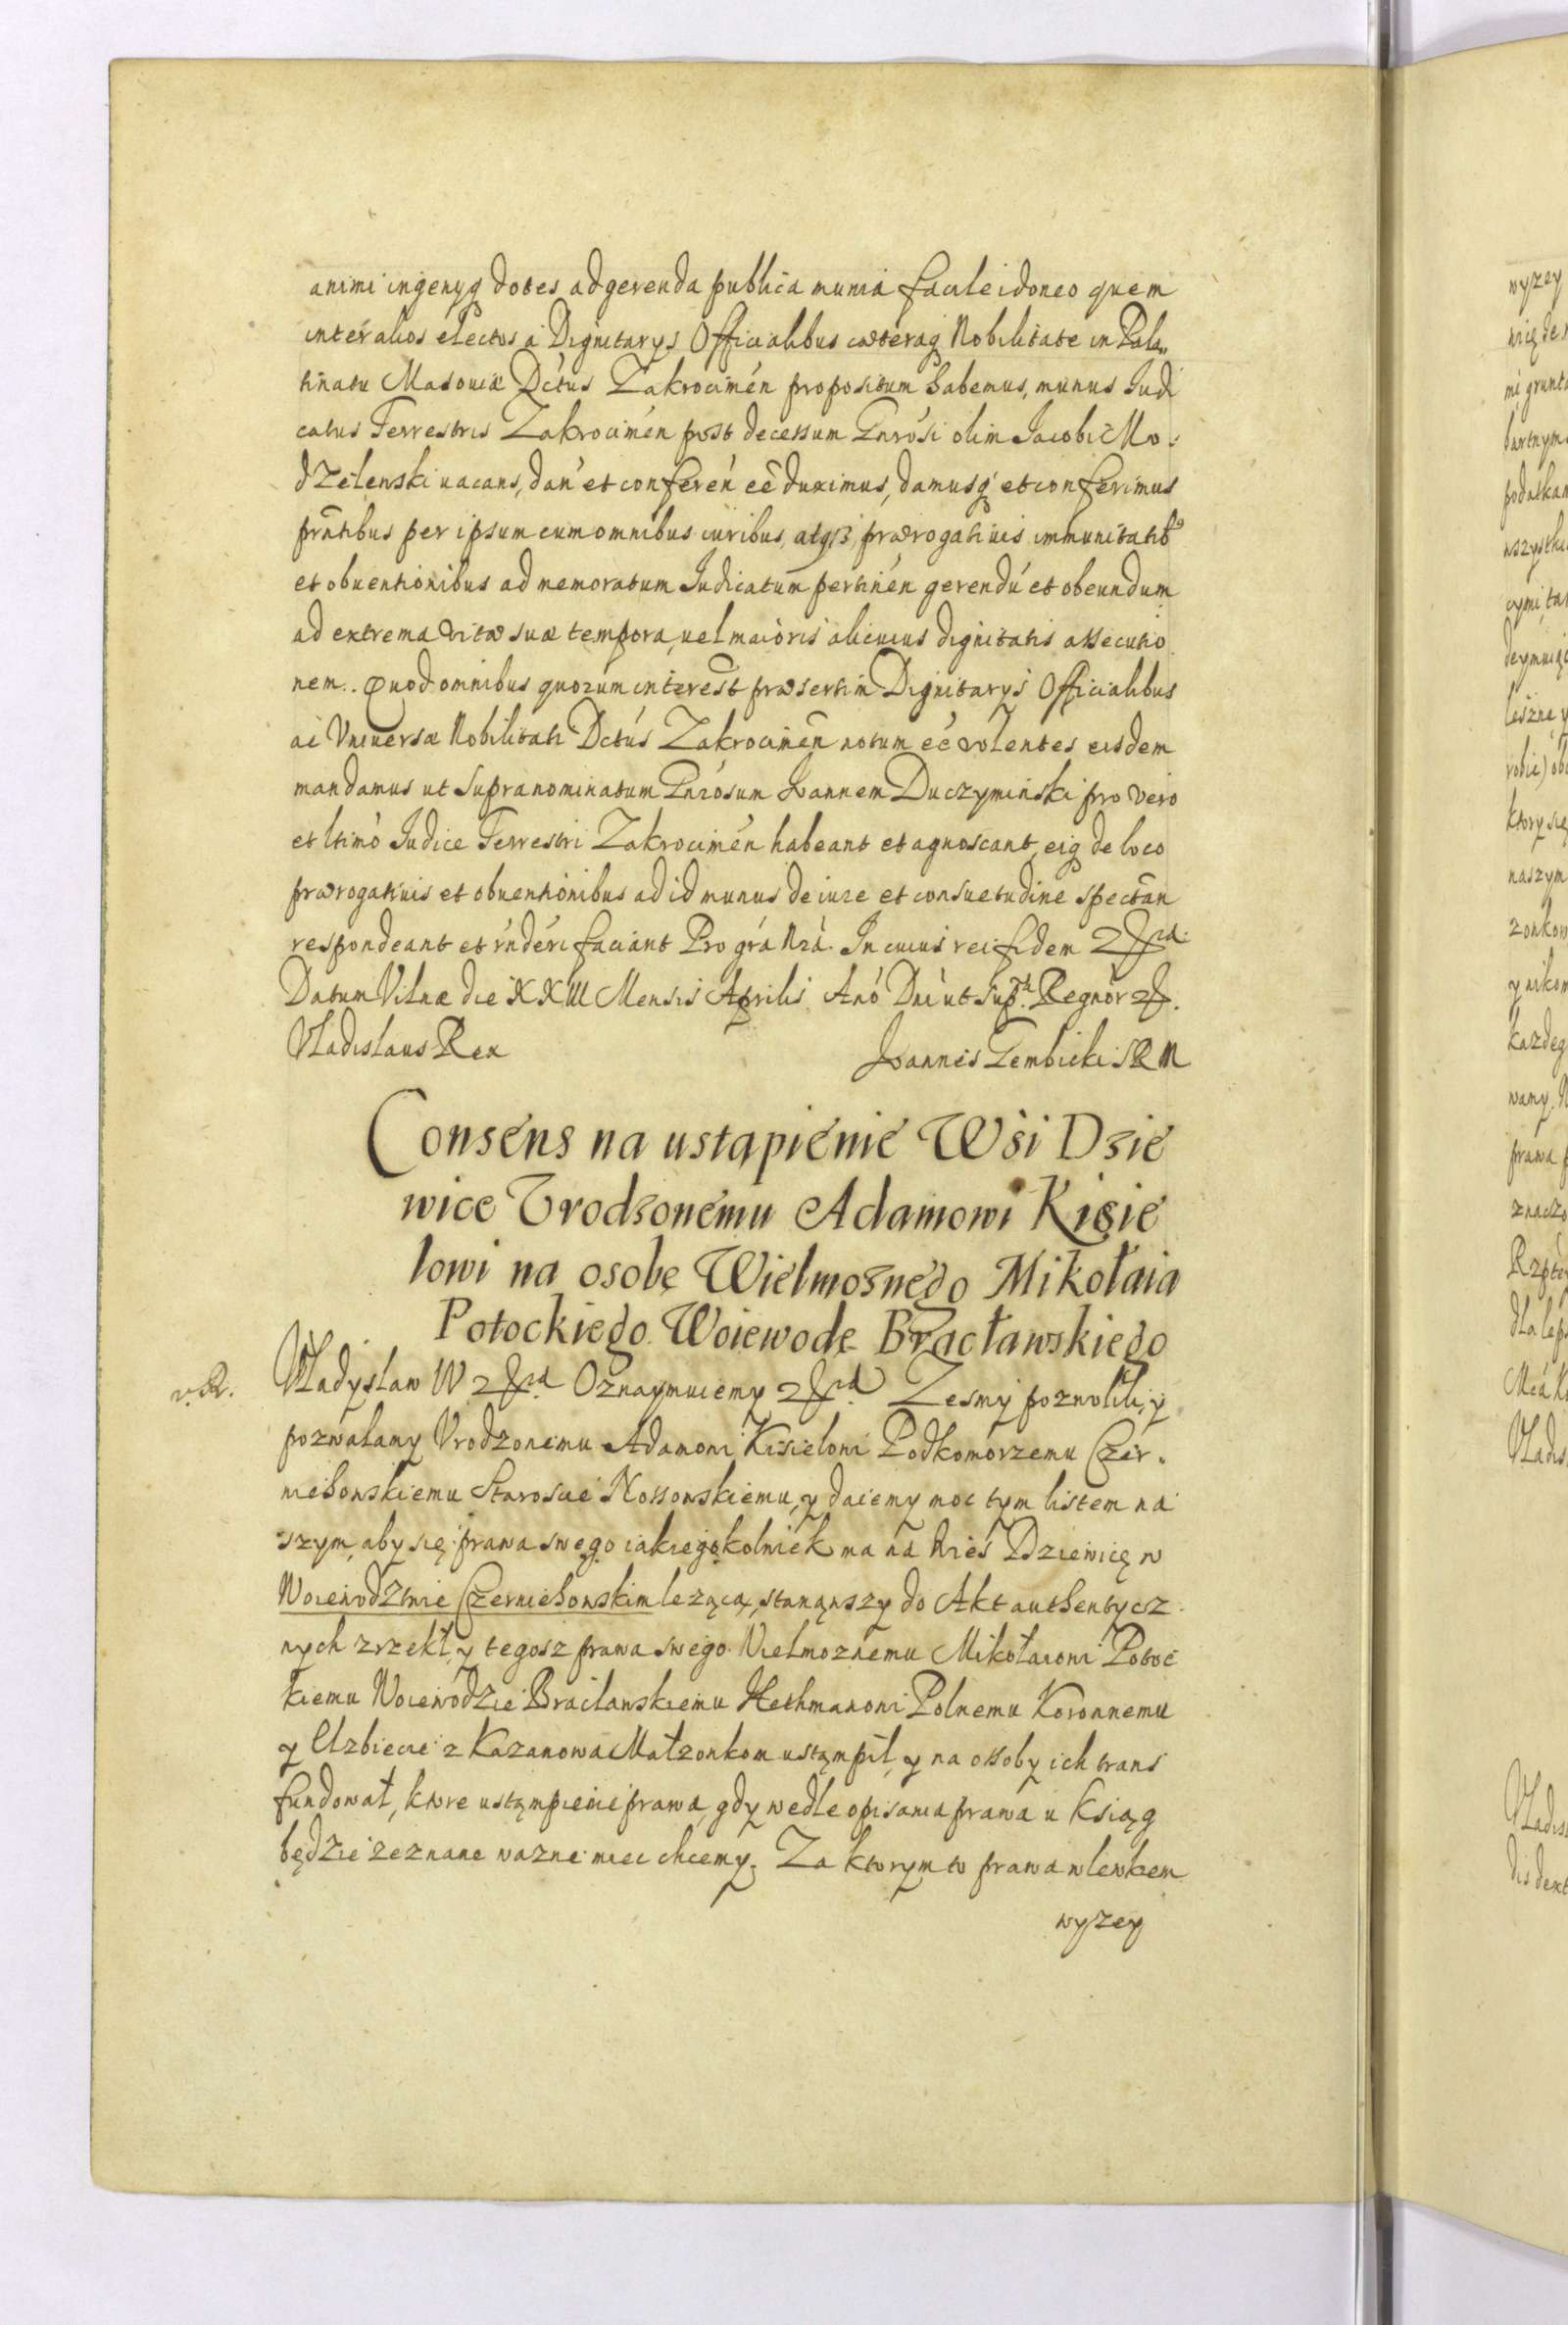 animi ingenyq dotes ad gerenda publica munia facile idoneo quem
inter alios electos a Dignitarys Officialibus cæteraq Nobilitate in Pala
tinatu Masouiæ Dctus Zakrocimen propositum habemus, munus Iudi
catus Terrestris Zakrocimen post decessum Gnrosi olim Iacobi Mo
dzelenski uacans, dan et conferen eē duximus, damusq et conferimus
prntibus per ipsum cum omnibus iuribus, prærogatiuis immunitatib9
et obuentionibus ad memoratum Iudicatum pertinen gerendu et obeundum
ad extrema vitæ suæ tempora, uel maioris alicuius dignitatis assecutio
nem. Quod omnibus quorum interest præsertim Dignitarys Officialibus
ac Vniuersæ Nobilitati Dctus Zakrocimen notum eē volentes eisdem
mandamus ut supranominatum Gnrosum Ioannem Duczyminski pro vero
et ltimo Iudice Terrestri Zakrocimen habeant et agnoscant, eiq de loco
prærogatiuis et obuentionibus ad id munus de iure et consuetudine spectan
respondeant et rnderi faciant Pro gra Nra. In cuius rei fidem
Datum Vilnæ die XXIII Mensis Aprilis Ano Dni ut supra Regnor
Vladislaus Rex Ioannes Gembicki SRM
Consens na ustąpienie Wsi Dzie
wice Vrodzonemu Adamowi Kisie
lowi na osobę Wielmoznego Mikołaia
Potockiego Woiewodę Bracławskiego
v. R. Władysław IV Oznaymuiemy Zesmy pozwolili, y
pozwalamy Vrodzonemu Adamowi Kisielowi Podkomorzemu Czer
niehowskiemu Staroscie Nossowskiemu, y daiemy moc tym listem na
szym, aby się prawa swego iakiegokolwiek ma na Wieś Dziewicę w
Woiewodztwie Czerniehowskim leząca, stanąwszy do Akt authentycz
nych zrzekł, y tegosz prawa swego Wielmoznemu Mikołaiowi Potoc
kiemu Woiewodzie Bracławskiemu Hethmanowi Polnemu Koronnemu
y Elzbiecie z Kazanowa Małzonkom ustąmpił, y na ossoby ich trans
fundował, ktore ustąmpienie prawa, gdy wedle opisania prawa u Ksiąg
będzie zeznane wazne miec chcemy. Za ktorym to prawa wlewkiem
wyzey